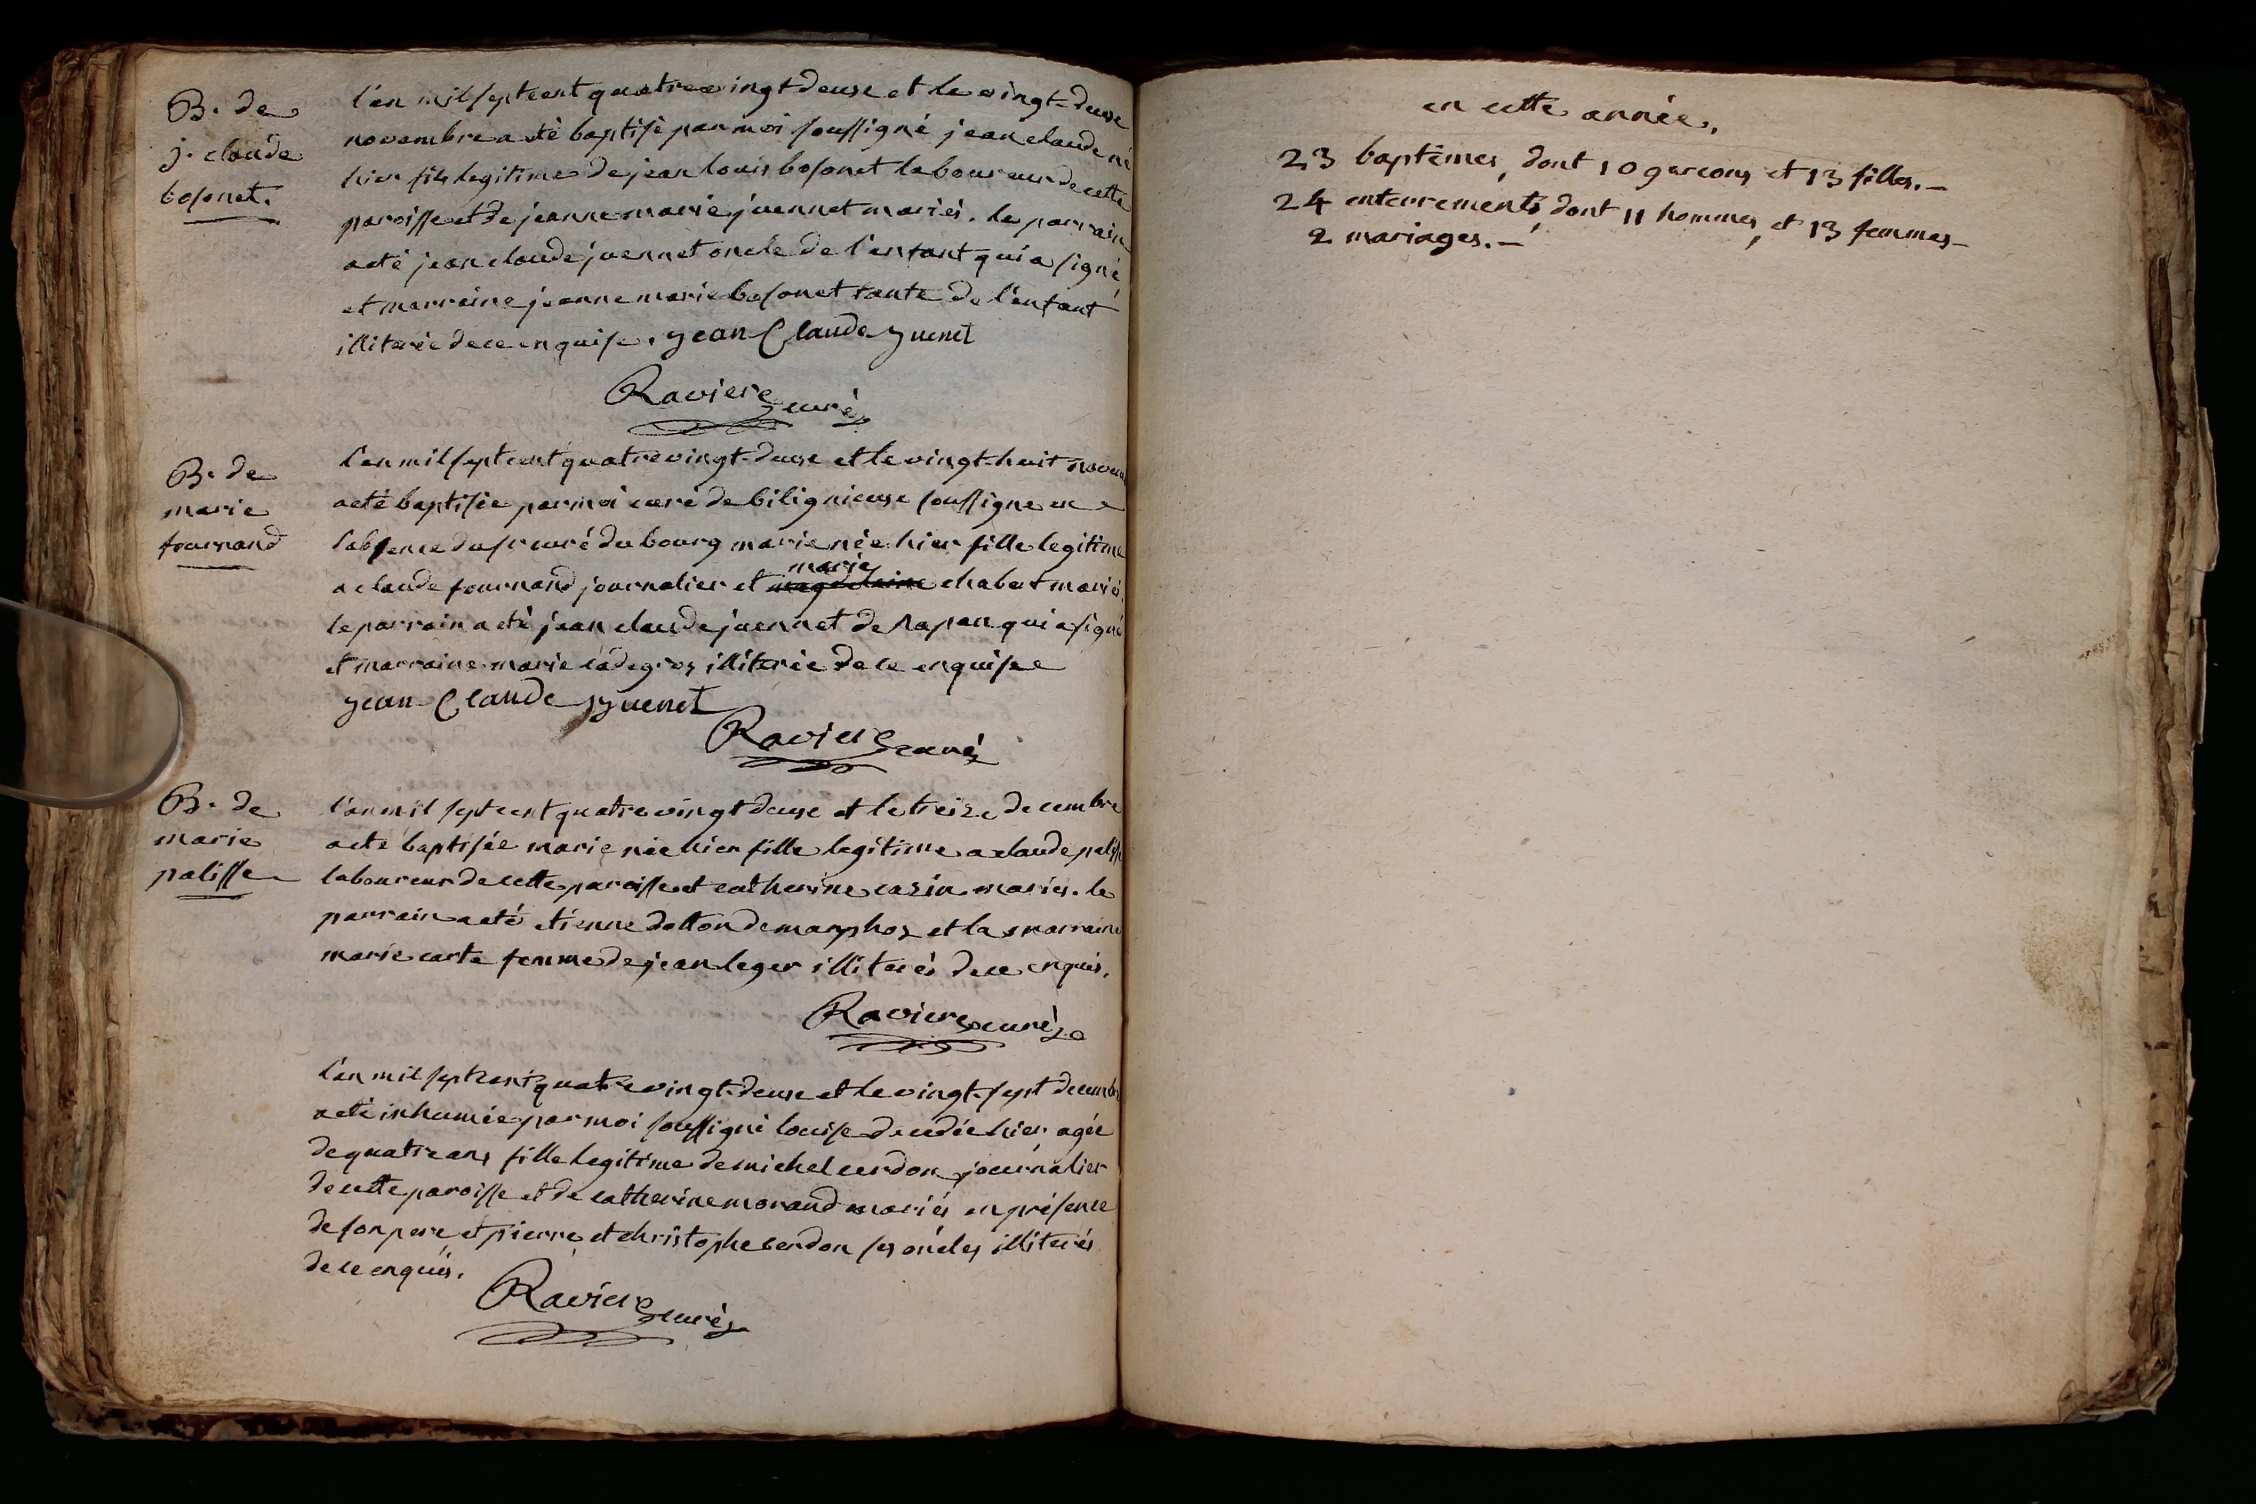 B. de
j. claude
bosonet.
l'an mil sept cent quatre vingt-deux et le vingt-deux
novembre a été baptisé par moi soussigné jean claude né
hier fils legitime de jean louis bosonet laboureur de cette
paroisse et de jeanne marie juennet mariés. le parrain
a eté jean claude juennet oncle de l'enfant qui a signé
et marraine jeanne marie bosonet tante de l'enfant
illiterée de ce enquise. jean Claude yuenet
Raviere curé
B. de
marie
fournand
l'an mil sept cent quatre vingt-deux et le vingt-huit novem
a eté baptisée par moi curé de bilignieux soussigné en
l'absence du sr curé du bourg marie née hier fille legitime
a claude fournand journalier et marie chabert mariés.
le parrain a eté jean claude juennet de napan qui a signé
et marraine marie cadegros illiterée de ce enquise
jean Claude yuenet
Raviere curé
B. de
marie
palisse
l'an mil sept cent quatre vingt deux et le treize decembre
a eté baptisée marie née hier fille legitime a claude palisse
laboureur de cette paroisse et catherine cazin mariés. le
parrain a eté etienne dotton de marphoz et la marraine
marie carte femme de jean leger illiterés de ce enquis.
Raviere curé
l'an mil sept cent quatre vingt-deux et le vingt-sept decemb
a eté inhumée par moi soussigné louise decedée hier agée
de quatre ans fille legitime de michel cerdon journalier
de cette paroisse et de catherine morand mariés en présence
de son pere et pierre et christophe cerdon ses oncles illiterés
de ce enquis.
Raviere curé
en cette année,
23 baptêmes, dont 10 garcons et 13 filles. —
24 enterrements dont 11 hommes, et 13 femmes —
2 mariages. —